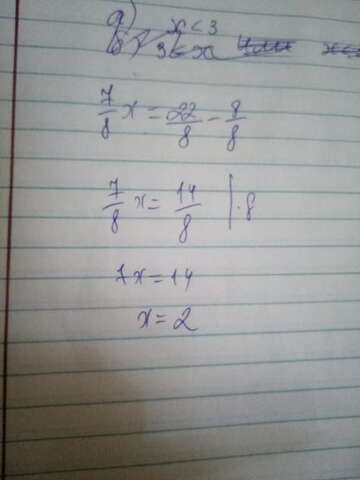 а) x<3
б) 3<x
7/8 x = 22/8 - 8/8
7/8 x = 14/8 | ·8
7x = 14
x = 2